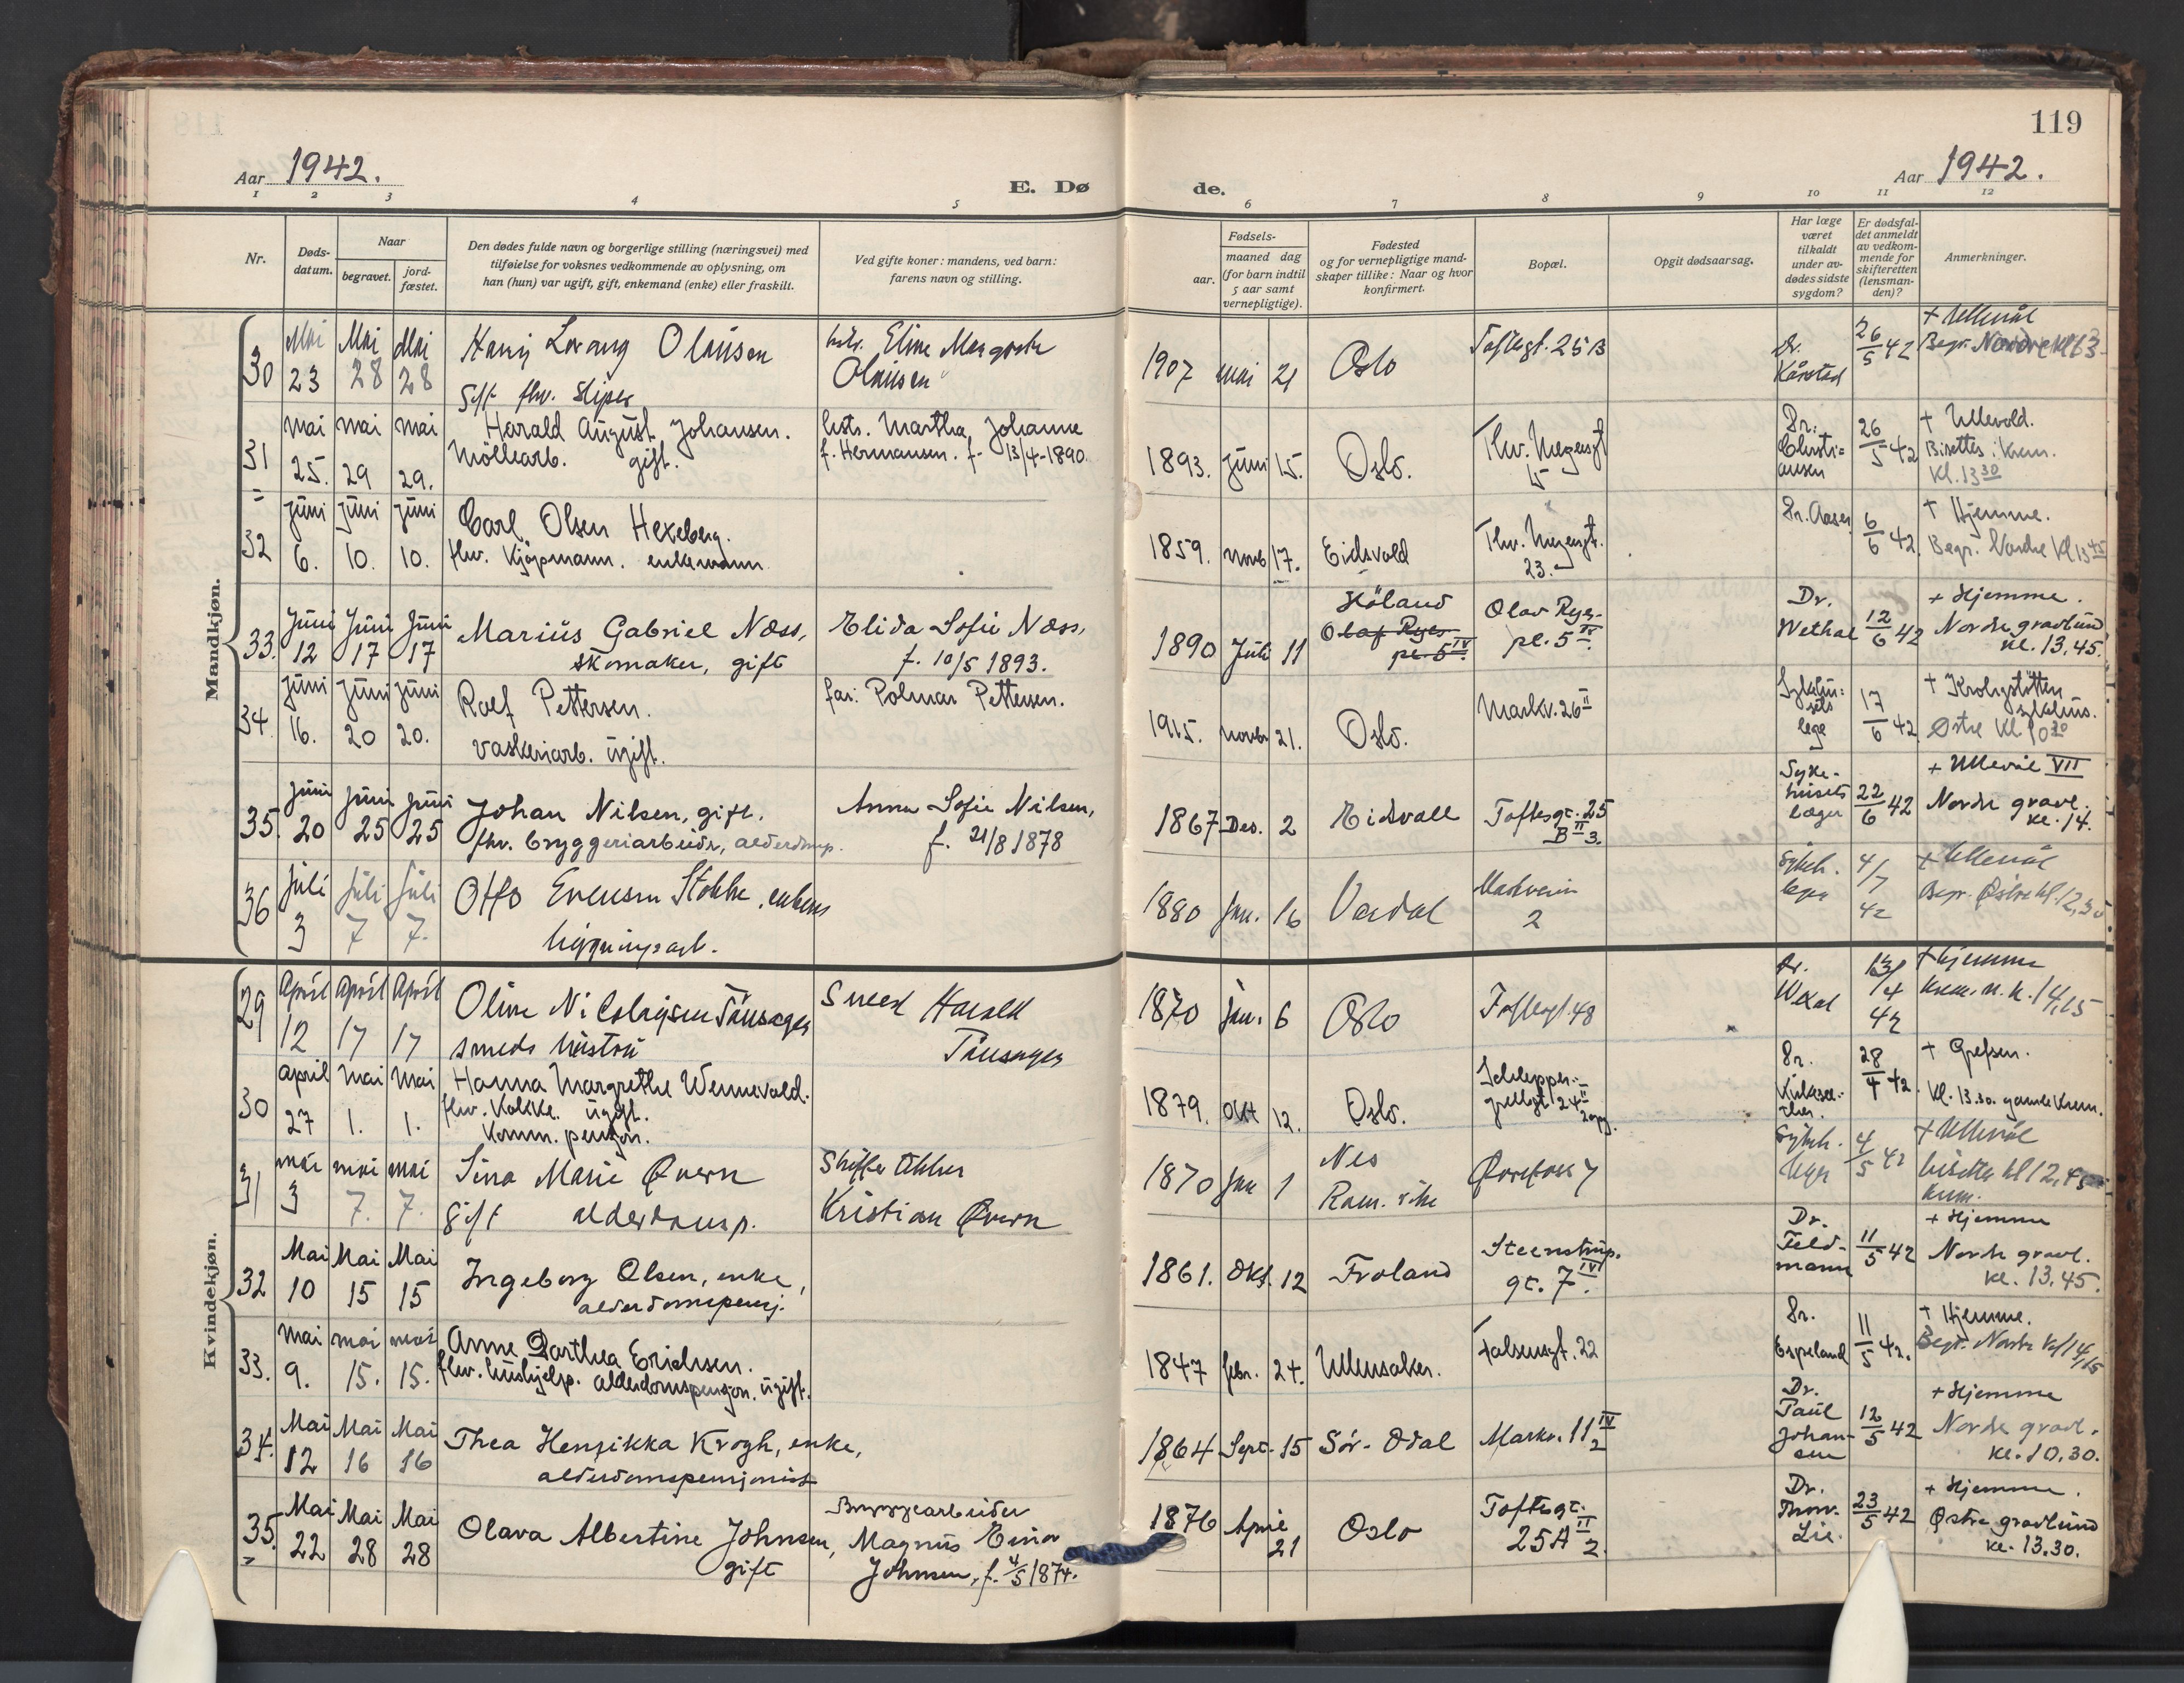 119
Aar 1942.
E. Dø
de.
Aar 1942.
1 2 3 4 5 6 7 8 9 10 11 12
Nr.
Døds-
datum.
Naar
begravet.
jord-
fæstet.
Den dødes fulde navn og borgerlige stilling (næringsvei) med
tilføielse for voksnes vedkommende av oplysning, om
han (hun) var ugift, gift, enkemand (enke) eller fraskilt.
Ved gifte koner: mandens, ved barn:
farens navn og stilling.
Fødsels-
aar.
maaned dag
(for barn indtil
5 aar samt
vernepligtige).
Fødested
og for vernepligtige mand-
skaper tillike: Naar og hvor
konfirmert.
Bopæl.
Opgit dødsaarsag.
Har læge
været
tilkaldt
under av-
dødes sidste
sygdom?
Er dødsfal-
det anmeldt
av vedkom-
mende for
skifteretten
(lensman-
den)?
Anmerkninger.
Mandkjøn.
30
Mai 23
Mai 28
Mai 28
Olausen
gift fhv.
hstr. Eline Margrete
Olausen
1907 mai 21
Oslo
Toftesgt. 25 B
Dr.
Kårstad
26/5 42
+ Ullevål
Begr. Nordre kl 13
31
mai 25.
mai 29
mai 29.
Harald August Johansen.
Møllearb. gift.
hstr. Martha Johanne
f. Hermansen. f. 13/4-1890.
1893. juni 15.
Oslo.
Thv. Meyersgt
15
Dr.
Christi=
ansen
26/5 42
+ Ullevold.
Bisettes i Krem.
Kl. 13 30
32
juni 6.
juni 10.
juni 10.
Carl Olsen Hexeberg.
fhv. Kjøpmann. enkemann
1859. novb 17.
Eidsvold
Thv. Meyersgt.
23.
Dr. Aaser
6/6 42.
+ Hjemme.
Begr. Nordre Kl 13 45
33.
Juni 12
Juni 17
Juni 17
Marius Gabriel Næss,
skomaker, gift
Elida Sofie Næss,
f. 10/5 1893.
1890 Juli 11
Höland
Olaf Ryes
pl. 5 IV.
Olav Ryes-
pl. 5 IV.
Dr.
Wethal
12/6 42
+ Hjemme.
Nordre gravlund
kl. 13.45.
34.
juni 16.
juni 20
juni 20.
Rolf Pettersen.
vaskeriarb. ugift.
far: Polmar Pettersen.
1915. novbr 21.
Oslo.
Markv. 26 II
lege
17/6 42
+ Krohgstøtten
sykehus.
Østre Kl 10 30
35.
Juni 20
Juni 25
Juni 25
Johan Nilsen, gift,
fhv. bryggeriarbeider, alderdomsp.
Anna Sofie Nilsen,
f. 21/8 1878
1867 Des. 2
Eidsvoll
Toftesgt. 25
B II 3.
Syke-
husets
læger
22/6 42
+ Ullevål VII
Nordre gravl.
kl. 14.
36
juli 3
juli 7
juli 7.
Otto Evensen Stokke, enkem
bygningsarb.
1880 Jan. 16
Vardal
Markveien
2
Sykeh.
leger
4/7 42
+ Ullevål
Begr. Østre kl. 12,30
Kvindekjøn.
29
April 12
April 17
April 17
Oline Nicolaysen Tausager
smeds hustru
Smed Harald
Tausager
1870 Jan. 6
Oslo
Toftesgt. 48
Dr.
13/4 42
+ hjemme
krem. n. k. 14,15
30
april 27
mai 1.
mai 1.
Hanna Margrethe Wennevold.
fhv. Kokke. ugift.
Komm. pensjon.
1879. okt 12.
Oslo.
Schleppe-
grellsgt. 24 II
Dr.
28/4 42
+ Grefsen.
Kl. 13.30. gamle Krem.
31
mai 3
mai 7.
mai 7.
Sina Marie Øvern
gift alderdomsp.
Kristian Øvern
1870 Jan 1
Nes
Rom. rike
Øvrefoss 7
Sykeh.
leger
4/5 42
+ Ullevål
bisettes kl 12,45
krem.
32
Mai 10
Mai 15
Mai 15
Ingeborg Olsen, enke,
alderdomspensj.
1861. Okt. 12
Froland
Steenstrup.
gt. 7 IV.
Dr.
Feld-
mann
11/5 42
+ Hjemme
Nordre gravl.
kl. 13.45.
33.
mai 9.
mai 15.
mai 15.
Anne Dorthea Erichsen.
fhv. hushjelp. alderdomspensjon. ugift.
1847 febr. 24.
Ullensaker.
Falsensgt. 22
Dr.
Espeland
11/5 42.
+ Hjemme.
Begr. Nordre Kl 14,15
34.
Mai 12
Mai 16
Mai 16
Thea Henrikka Krogh, enke,
alderdomspensjonist
1864 Sept. 15
Sør-Odal
Markv. 11 IV
2
Dr.
Paul
Johan-
sen
12/5 42
+ Hjemme
Nordre gravl.
kl. 10.30.
35.
Mai 22
Mai 28
Mai 28
Olava Albertine Johnsen,
gift
Bryggearbeider
Magnus Einar
Johnsen, f. 4/5 1874.
1876 April 21
Oslo
Toftesgt.
25 A II 2.
Dr.
Thorv.
Lie.
23/5 42
+ Hjemme.
Østre gravlund
kl. 13.30.